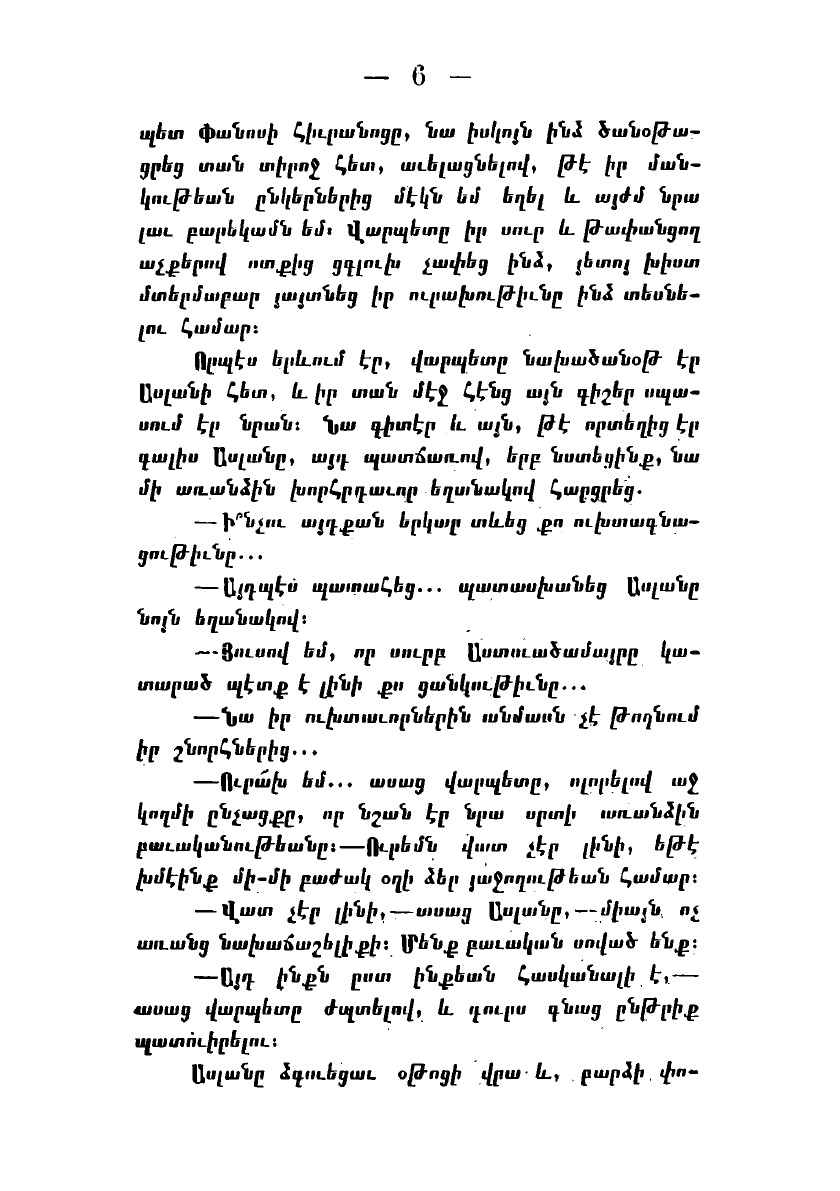 — 6 —
պետ Փանոսի հիւրանոցը, նա իսկոյն ինձ ծանօթա-
ցրեց տան տիրոջ հետ, աւելացնելով, թէ իր ման-
կութեան ընկերներից մէկն եմ եղել և այժմ նրա
լաւ բարեկամն եմ։ Վարպետը իր սուր և թափանցող
աչքերով ոտքից ցգլուխ չափեց ինձ, յետոյ խիստ
մտերմաբար յայտնեց իր ուրախութիւնը ինձ տեսնե-
լու համար։
Որպէս երևում էր, վարպետը նախածանօթ էր
Ասլանի հետ, և իր տան մէջ հէնց այն գիշեր սպա-
սում էր նրան։ Նա գիտէր և այն, թէ որտեղից էր
գալիս Ասլանը, այդ պատճառով, երբ նստեցինք, նա
մի առանձին խորհրդաւոր եղանակով հարցրեց.
— Ի՞նչու այդքան երկար տևեց քո ուխտագնա-
ցութիւնը...
— Այդպէս պատահեց... պատասխանեց Ասլանը
նոյն եղանակով։
— Յուսով եմ, որ սուրբ Աստուածամայրը կա-
տարած պէտք է լինի քո ցանկութիւնը...
— Նա իր ուխտաւորներին անմասն չէ թողնում
իր շնորհներից...
— Ուրա՛խ եմ... ասաց վարպետը, ոլորելով աջ
կողմի ընչացքը, որ նշան էր նրա սրտի առանձին
բաւականութեանը։ — Ուրեմն վատ չէր լինի, եթէ
խմէինք մի-մի բաժակ օղի ձեր յաջողութեան համար։
— Վատ չէր լինի, — ասաց Ասլանը, — միայն ոչ
առանց նախաճաշելիքի։ Մենք բաւական սոված ենք։
— Այդ ինքն ըստ ինքեան հասկանալի է, —
ասաց վարպետը ժպտելով, և դուրս գնաց ընթրիք
պատուիրելու։
Ասլանը ձգուեցաւ օթոցի վրա և, բարձի փո-